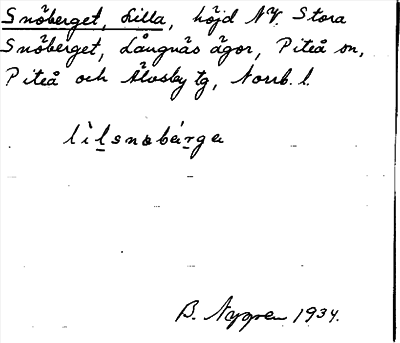 Snöberget, Lilla, höjd NV. Stora
Snöberget, Långnäs ägor, Piteå sn,
Piteå och Älvsby tg, Norrb. l.
lìlsnøbárga
B. Nygren 1934.